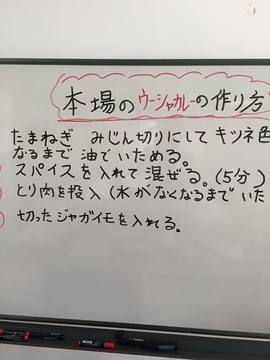 本場のウーシャカレーの作り方
たまねぎ みじん切りにして キツネ色
なるまで 油でいためる。
スパイスを入れて混ぜる。(5分)
とり肉を投入(水がなくなるまで いた
切ったジャガイモを入れる。